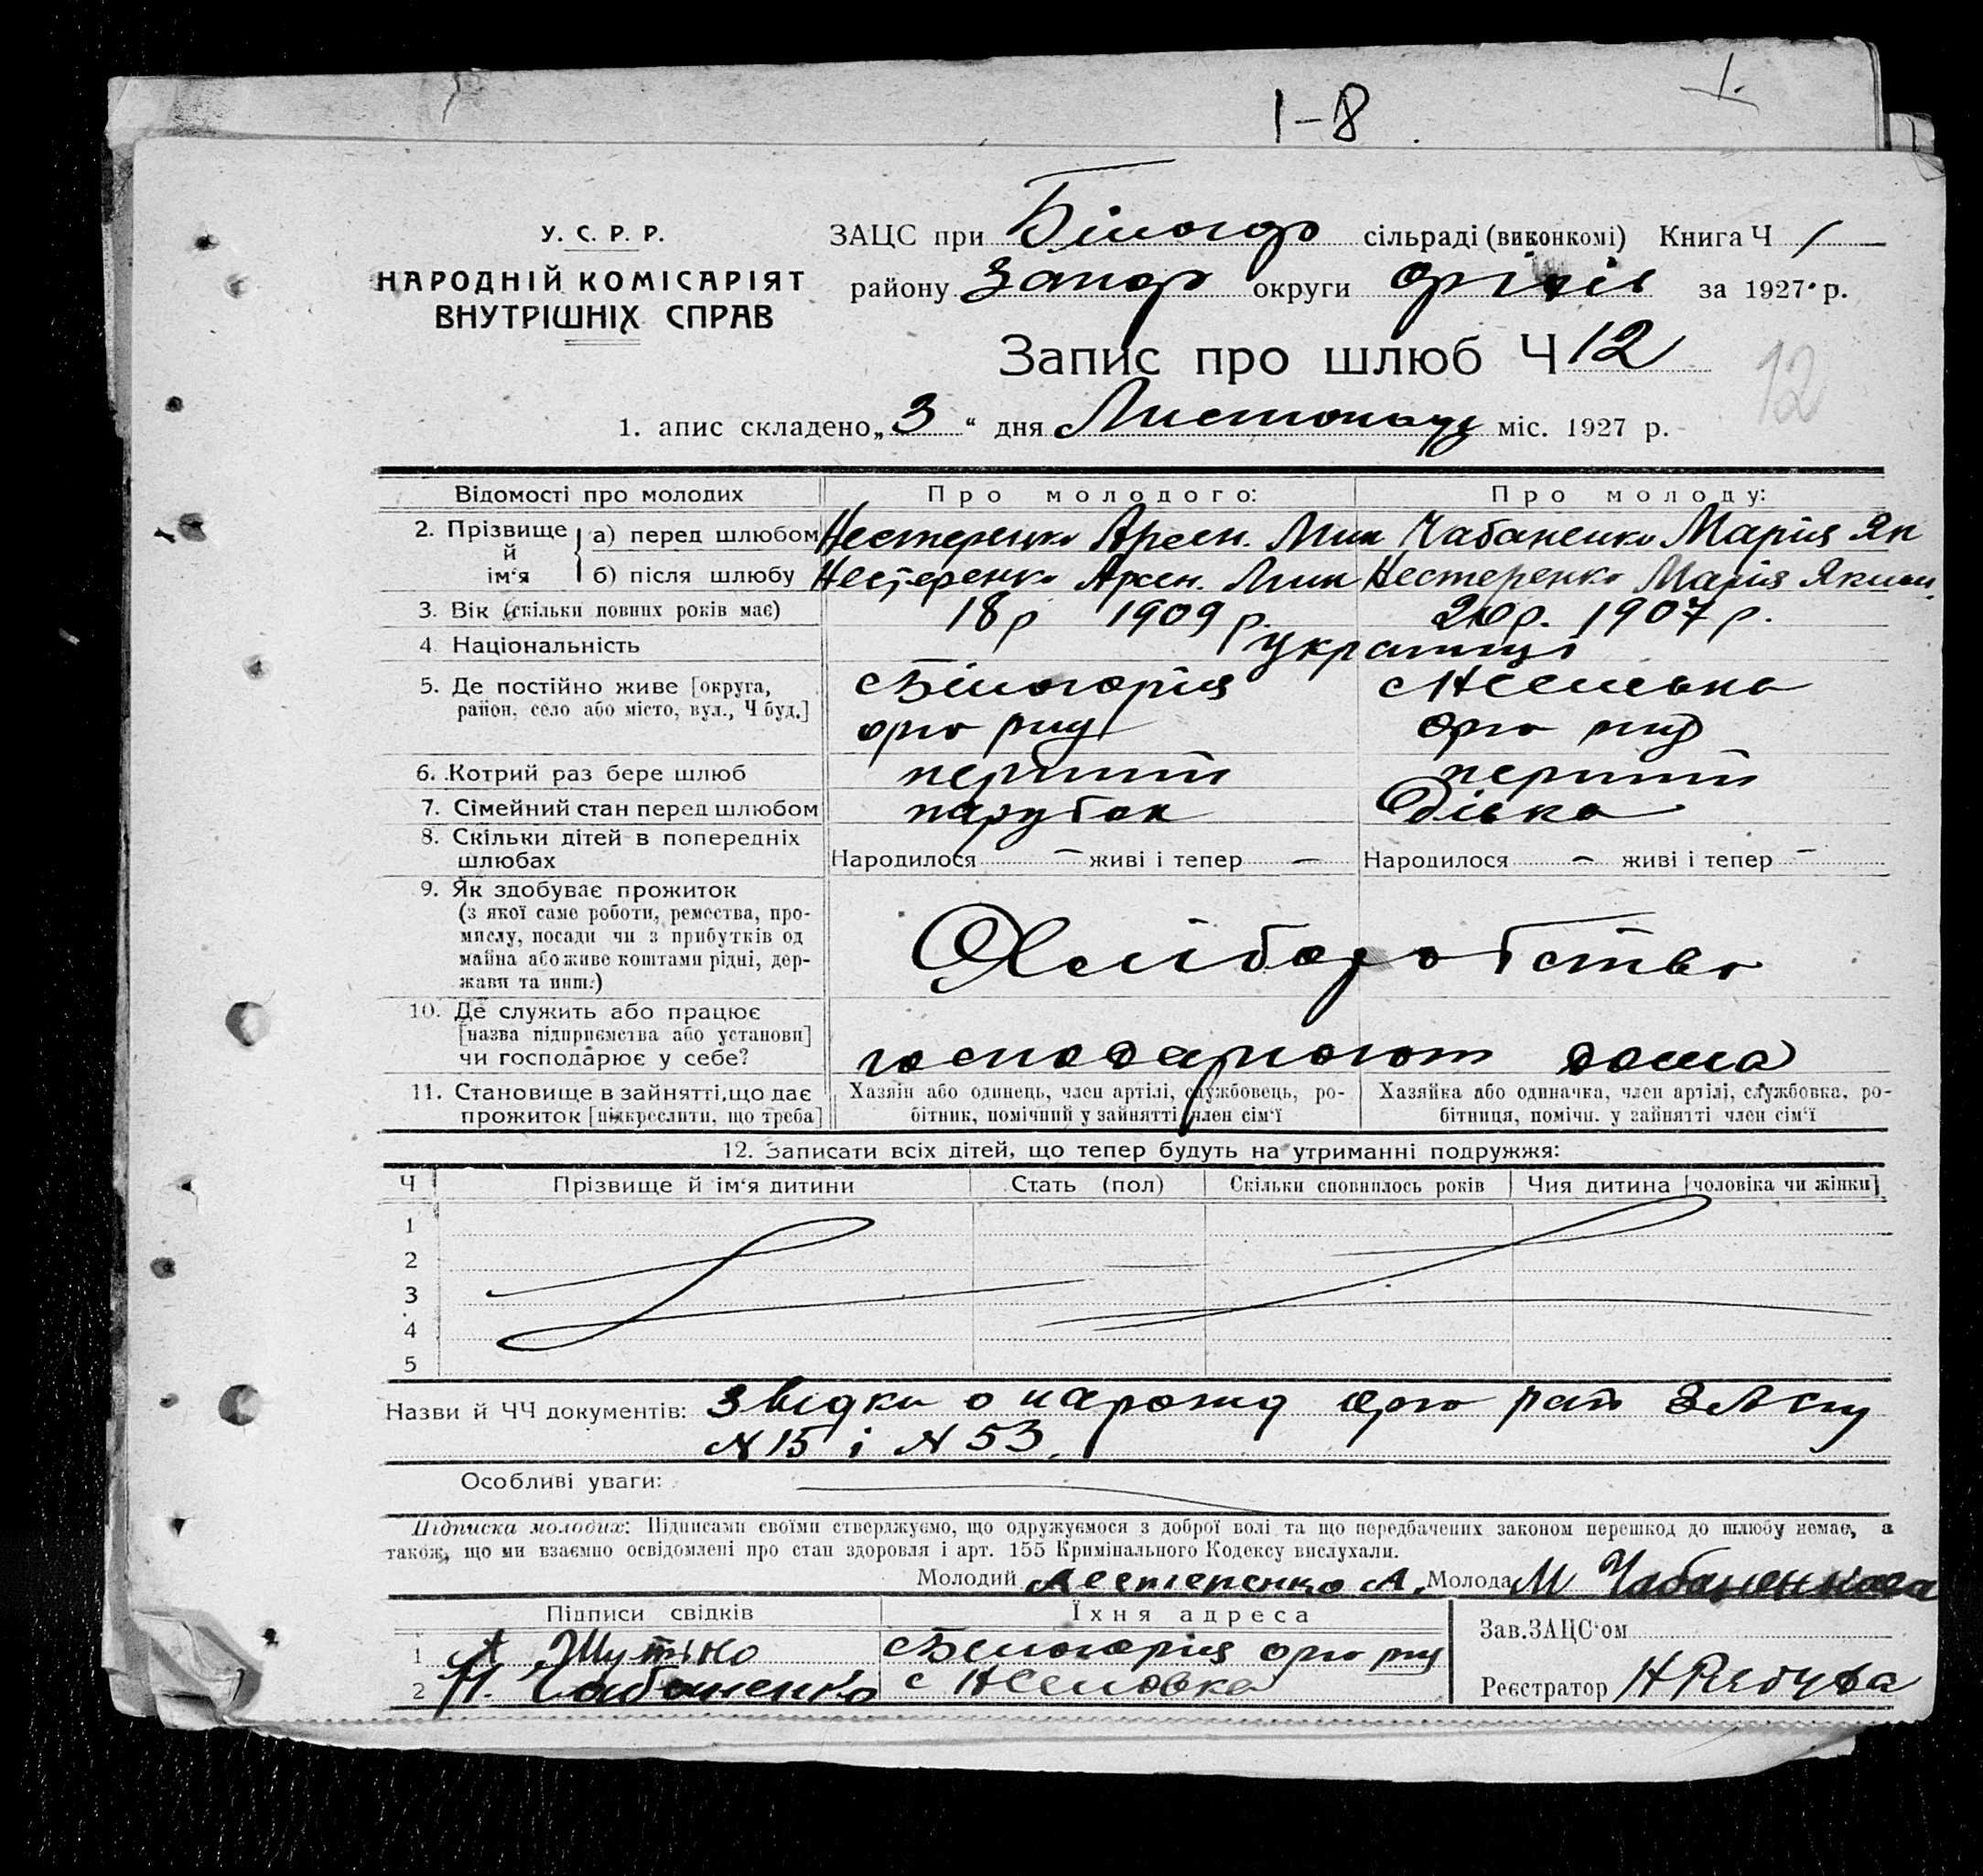 1-8
1.
У. С. Р. Р.
НАРОДНІЙ КОМІСАРІЯТ
ВНУТРІШНІХ СПРАВ
ЗАЦС при Білогор сільраді (виконкомі) Книга Ч 1
району Запор округи за 1927 р.
Запис про шлюб Ч 12
12
1. апис складено „3“ дня Листопаду міс. 1927 р.
Відомості про молодих Про молодого: Про молоду:
2. Прізвище й ім'я а) перед шлюбом Нестеренко Арсен. Мик Чабаненко Марія Як
б) після шлюбу Нестеренко Арсен. Мик Нестеренко Марія Яким.
3. Вік (скільки повних років має) 18р 1909 р. 20р. 1907 р.
4. Національність українці
5. Де постійно живе [округа, район, село або місто, вул., Ч буд.] с Білогорія
оріо рид оріо рид
6. Котрий раз бере шлюб перший перший
7. Сімейний стан перед шлюбом парубок дівка
8. Скільки дітей в попередніх шлюбах Народилося — живі і тепер — Народилося — живі і тепер —
9. Як здобуває прожиток
(з якої саме роботи, ремества, про-
мислу, посади чи з прибутків од
майна або живе коштами рідні, дер-
жави та инш.) Хліборобство
10. Де служить або працює
[назва підприємства або установи]
чи господарює у себе? господарюють дома
11. Становище в зайнятті, що дає прожиток [підкреслити, що треба] Хазяїн або одинець, член артілі, службовець, ро- Хазяйка або одиначка, член артілі, службовка, ро-
бітник, помічний у зайнятті член сім'ї бітниця, помічн. у зайнятті член сім'ї
12. Записати всіх дітей, що тепер будуть на утриманні подружжя:
Ч Прізвище й ім'я дитини Стать (пол) Скільки сповнилось років Чия дитина [чоловіка чи жінки]
1
2
3
4
5
Назви й ЧЧ документів: звідки о нарожд ЗАГСу
N 15 і N 53.
Особливі уваги:
Підписка молодих: Підписами своїми стверджуємо, що одружуємося з доброї волі та що передбачених законом перешкод до шлюбу немає, а
також, що ми взаємно освідомлені про стан здоровля і арт. 155 Кримінального Кодексу вислухали.
Молодий Нестеренко А. Молода М Чабаненкова
Підписи свідків Їхня адреса Зав.ЗАЦС'ом
1 А Шутько с Білогорія
2 Н. Чабаненко с Реєстратор